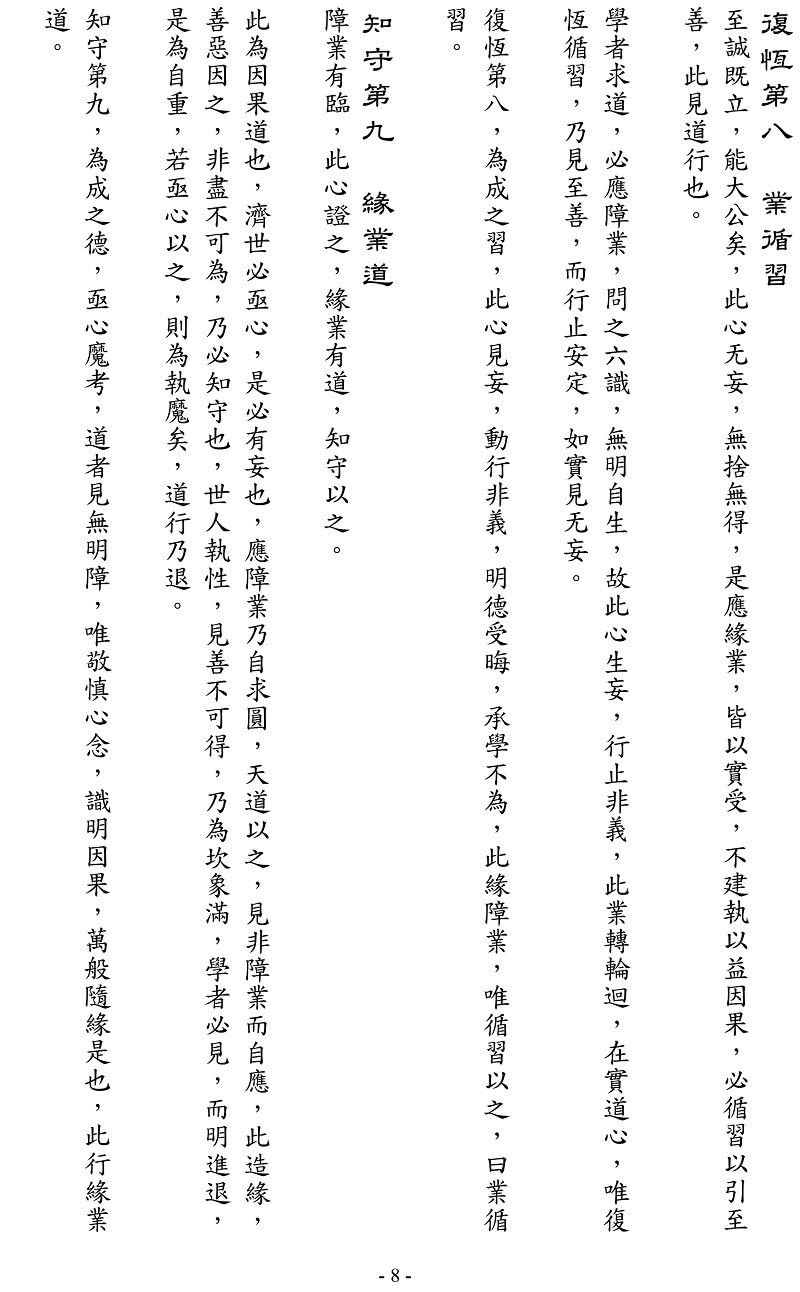 復恆第八　業循習
至誠既立，能大公矣，此心无妄，無捨無得，是應緣業，皆以實受，不建執以益因果，必循習以引至
善，此見道行也。
學者求道，必應障業，問之六識，無明自生，故此心生妄，行止非義，此業轉輪迴，在實道心，唯復
恆循習，乃見至善，而行止安定，如實見无妄。
復恆第八，為成之習，此心見妄，動行非義，明德受晦，承學不為，此緣障業，唯循習以之，曰業循
習。
知守第九　緣業道
障業有臨，此心證之，緣業有道，知守以之。
此為因果道也，濟世必亟心，是必有妄也，應障業乃自求圓，天道以之，見非障業而自應，此造緣，
善惡因之，非盡不可為，乃必知守也，世人執性，見善不可得，乃為坎象滿，學者必見，而明進退，
是為自重，若亟心以之，則為執魔矣，道行乃退。
知守第九，為成之德，亟心魔考，道者見無明障，唯敬慎心念，識明因果，萬般隨緣是也，此行緣業
道。
- 8 -